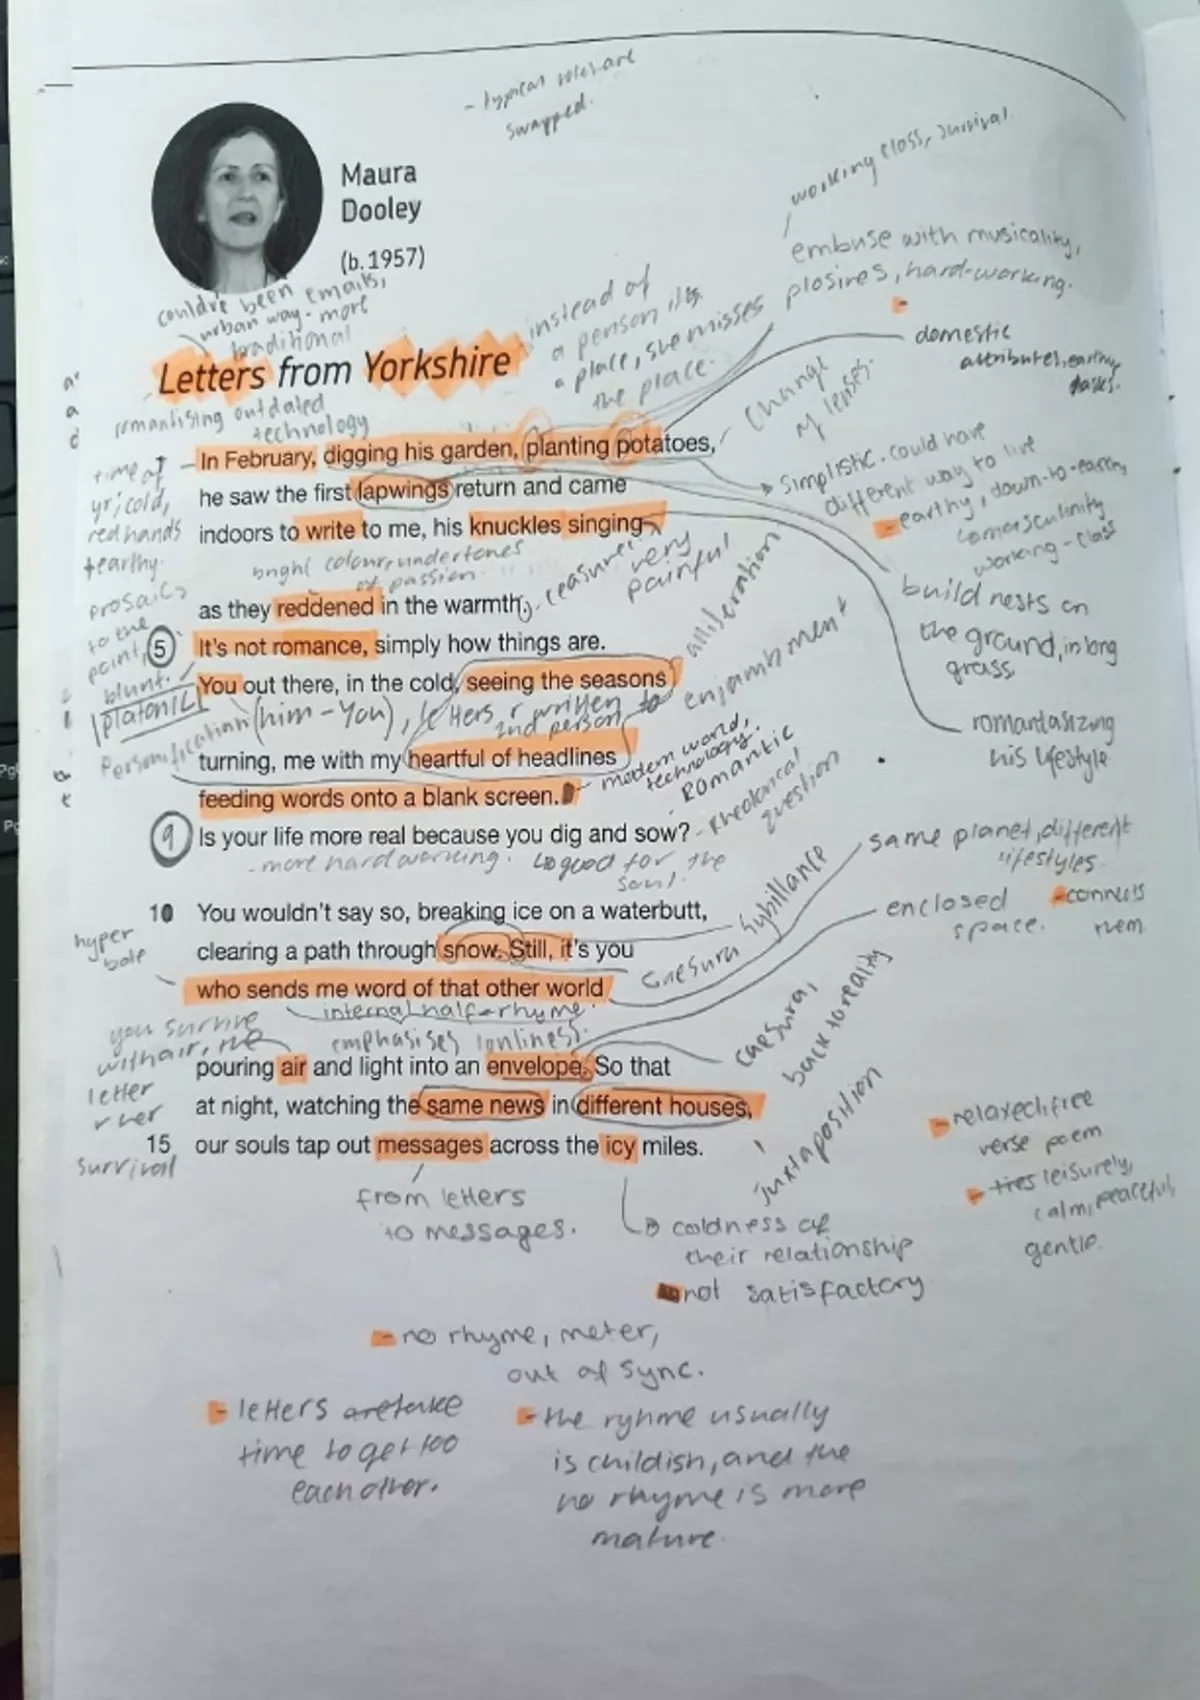 - typical roles are
swapped.
working class, survival
Maura
Dooley
(b. 1957)
embuse with musicality,
plosives, hard-working.
could've been
emails,
urban way. more
traditional
instead of
a person its
a place, she misses
the place.
domestic
attributes, earthy
tasks.
Letters from Yorkshire
romantising outdated
technology
change
of lenses.
In February, digging his garden, planting potatoes,
he saw the first lapwings return and came
indoors to write to me, his knuckles singing
time of
yr, cold,
red hands
+earthy.
simplistic. could have
different way to live
- earthy, down-to-earth,
working-class
bright colour, undertones
of passion.
very
painful
as they reddened in the warmth.
alliteration
build nests on
the ground, in long
grass
prosaic,
to the
point,
blunt.
5 It's not romance, simply how things are.
You out there, in the cold, seeing the seasons
platonic
Personification
(him - You), letters r written to
2nd person
enjambment
romantasizing
his lifestyle
turning, me with my heartful of headlines
feeding words onto a blank screen.
modern world,
technology.
- Romantic
9 Is your life more real because you dig and sow?
- Rhetorical
question
- more hardworking. good for the
soul.
same planet, different
lifestyles.
10 You wouldn't say so, breaking ice on a waterbutt,
clearing a path through snow. Still, it's you
who sends me word of that other world
hyper
bole
caesura
sybillance
enclosed
space.
- connects
them
internal half-rhyme.
emphasises lonliness.
you survive
with air, the
letter
r her
survival
pouring air and light into an envelope. So that
at night, watching the same news in different houses,
15 our souls tap out messages across the icy miles.
caesura,
back to reality
juxtaposition
- relaxed, free
verse poem
- leisurely,
calm, peaceful,
gentle.
from letters
to messages.
coldness of
their relationship
not satisfactory
- no rhyme, meter,
out of sync.
- letters are take
time to get too
each other.
- the ryhme usually
is childish, and the
no rhyme is more
mature.